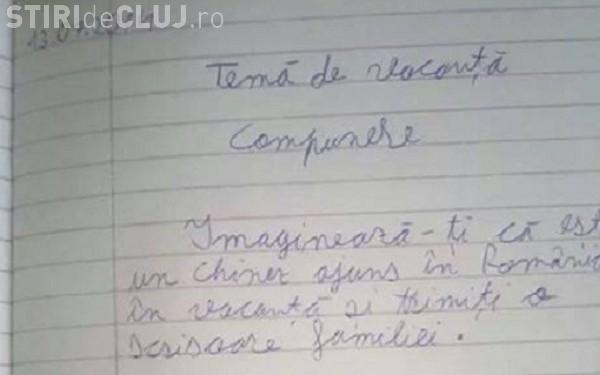 STIRIdeCLUJ.ro
Temă de vacanță
Compunere
Imaginează-ți că est
un chinez ajuns în Români
în vacantă si trimiți o
scrisoare familiei.